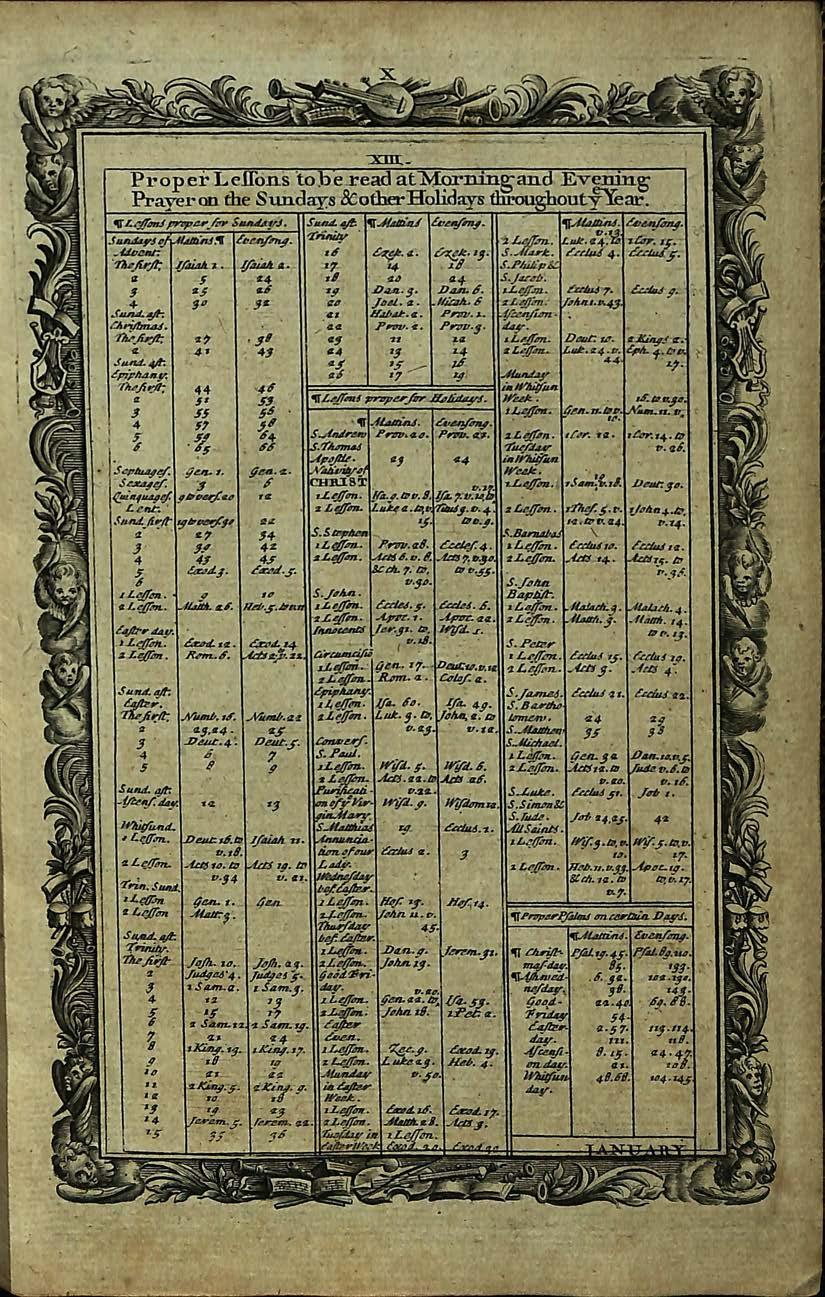 X
XIII.
Proper Leſſons to be read at Morning and Evening
Prayer on the Sundays & other Holidays throughout yᵉ Year.
¶ Leſſons proper for Sundays.
Sundays of Mattins. ¶ Evenſong.
Advent.
The firſt, Iſaiah 1. Iſaiah 2.
2 5 24
3 25 26
4 30 32
Sund. aft.
Chriſtmas.
The firſt, 37 38
2 41 43
Sund. aft.
Epiphany.
The firſt, 44 46
2 51 53
3 55 56
4 57 58
5 59 64
6 65 66
Septuageſ. Gen. 1. Gen. 2.
Sexageſ. 3 6
Quinquageſ. 9 to verſ. 20 12
Lent.
Sund. firſt 19 to verſ. 30 22
2 27 34
3 39 42
4 43 45
5 Exod. 3. Exod. 5.
6
1 Leſſon. 9 10
2 Leſſon. Matth. 26. Heb. 5. to v. 11
Eaſter day.
1 Leſſon. Exod. 12. Exod. 14
2 Leſſon. Rom. 6. Acts 2. v. 22.
Sund. aft.
Eaſter.
The firſt, Numb. 16. Numb. 22
2 23, 24. 25
3 Deut. 4. Deut. 5.
4 6 7
5 8 9
Sund. aft.
Aſcenſ. day. 12 13
Whitſund.
1 Leſſon. Deut. 16. to Iſaiah 11.
v. 18.
2 Leſſon. Acts 10. to Acts 19. to
v. 34 v. 21.
Trin. Sund.
1 Leſſon Gen. 1. Gen
2 Leſſon Matt. 3.
Sund. aft.
Trinity.
The firſt Joſh. 10. Joſh. 23.
2 Judges 4. Judges 5.
3 1 Sam. 2. 1 Sam. 3.
4 12 13
5 15 17
6 2 Sam. 12. 2 Sam. 19.
7 21 24
8 1 King. 13. 1 King. 17.
9 18 19
10 21 22
11 2 King. 5. 2 King. 9.
12 10 18
13 19 23
14 Jerem. 5. Jerem. 22.
15 35 36
Sund. aft. ¶ Mattins Evenſong.
Trinity
16 Ezek. 2. Ezek. 13.
17 14 18
18 20 24
19 Dan. 3. Dan. 6.
20 Joel. 2. Micah. 6
21 Habak. 2. Prov. 1.
22 Prov. 2. Prov. 3.
23 11 12
24 13 14
25 15 16
26 17 19
¶ Leſſons proper for Holidays.
¶ Mattins. Evenſong.
S. Andrew Prov. 20. Prov. 21.
S. Thomas
Apoſtle. 23 24
Nativity of
CHRIST v. 17.
1 Leſſon. Iſa. 9. to v. 8. Iſa. 7. v. 10. to
2 Leſſon. Luke 2. to v. Titus 3. v. 4.
15. to v. 9.
S. Stephen
1 Leſſon. Prov. 28. Eccleſ. 4.
2 Leſſon. Acts 6. v. 8. Acts 7. v. 30.
& ch. 7. to, to v. 55.
v. 30.
S. John.
1 Leſſon. Eccles. 5. Eccles. 6.
2 Leſſon. Apoc. 1. Apoc. 22.
Innocents Jer. 31. to, Wiſd. 1.
v. 18.
Circumciſiō
1 Leſſon. Gen. 17. Deut. 10. v. 12
2 Leſſon Rom. 2. Coloſ. 2.
Epiphany.
1 Leſſon. Iſa. 60. Iſa. 49.
2 Leſſon. Luk. 3. to, John, 2. to
v. 23. v. 12.
Converſ.
S. Paul.
1 Leſſon. Wiſd. 5. Wiſd. 6.
2 Leſſon. Acts. 22. to Acts 26.
Purificati- v. 22.
on of yᵉ Vir- Wiſd. 9. Wiſdom 12.
gin Mary.
S. Matthias 19. Ecclus. 1.
Annuncia-
tion of our Ecclus 2. 3
Lady.
Wedneſday
bef. Eaſter.
1 Leſſon. Hoſ. 13. Hoſ. 14.
2 Leſſon. John 11. v.
Thurſday 45.
bef. Eaſter.
1 Leſſon. Dan. 9. Jerem. 31.
2 Leſſon. John 13.
Good Fri-
day. v. 20.
1 Leſſon. Gen. 22. to, Iſa. 53.
2 Leſſon. John 18. 1 Pet. 2.
Eaſter
Even.
1 Leſſon. Zec. 9. Exod. 13.
2 Leſſon. Luke 23. Heb. 4.
Munday v. 50.
in Eaſter
Week.
1 Leſſon. Exod. 16. Exod. 17.
2 Leſſon. Matth. 28. Acts 3.
Tueſday in 1 Leſſon.
Eaſter Week Exod. 20. Exod 32
¶ Mattins. Evenſong.
v. 13.
2 Leſſon. Luk. 24. to 1 Cor. 15.
S. Mark. Ecclus 4. Ecclus. 5.
S. Philip &
S. Jacob.
1 Leſſon. Ecclus 7. Ecclus 9.
2 Leſſon. John 1. v. 43.
Aſcenſion-
day.
1 Leſſon. Deut. 10. 2 Kings 2.
2 Leſſon. Luk. 24. v. Eph. 4. to v.
44. 17.
Munday
in Whitſun
Week. 16. to v. 30.
1 Leſſon. Gen. 11. to v. Num. 11. v.
10.
2 Leſſon. 1 Cor. 12. 1 Cor. 14. to
Tueſday v. 26.
in Whitſun
Week.
1 Leſſon. 1 Sam. 19. v. 18. Deut. 30.
2 Leſſon. 1 Theſ. 5. v. 1 John 4. to,
12. to v. 24. v. 14.
S. Barnabas
1 Leſſon. Ecclus 10. Ecclus 12.
2 Leſſon. Acts 14. Acts 15. to
v. 36.
S. John
Baptiſt.
1 Leſſon. Malach. 3. Malach. 4.
2 Leſſon. Matth. 3. Matth. 14.
to v. 13.
S. Peter
1 Leſſon. Ecclus 15. Ecclus 19.
2 Leſſon. Acts 3. Acts 4.
S. James. Ecclus 21. Ecclus 22.
S. Bartho-
lomew. 24 29
S. Matthew 35 38
S. Michael.
1 Leſſon. Gen. 32 Dan. 10. v. 5.
2 Leſſon. Acts 12. to Jude v. 6. to
v. 20. v. 16.
S. Luke. Ecclus 51. Job 1.
S. Simon &
S. Jude. Job 24, 25. 42
All Saints.
1 Leſſon. Wiſ. 3. to, v. Wiſ. 5. to, v.
10. 17.
2 Leſſon. Heb. 11. v. 33. Apoc. 19.
& ch. 12. to to, v. 17.
v. 7.
¶ Proper Pſalms on certain Days.
¶ Mattins. Evenſong.
¶ Chriſt- Pſal. 19. 45. Pſal. 89. 110.
mas day. 85. 132.
¶ Aſhwed- 6. 32. 102. 130.
neſday. 38. 143.
Good- 22. 40. 69. 88.
Friday 54.
Eaſter- 2. 57. 113. 114.
day. 111. 118.
Aſcenſi- 8. 15. 24. 47.
on day. 21. 108.
Whitſun 48. 68. 104. 145.
day.
JANUARY